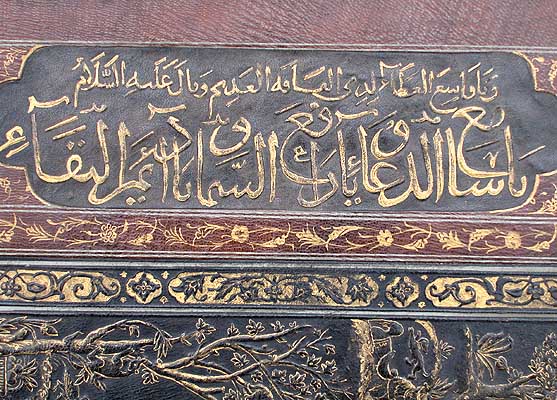 ويا واسع العطاء لذي الفاقه العديم وقال عليه السلام
يا سامع الدعاء ويا رافع السما ويا دائم البقاء